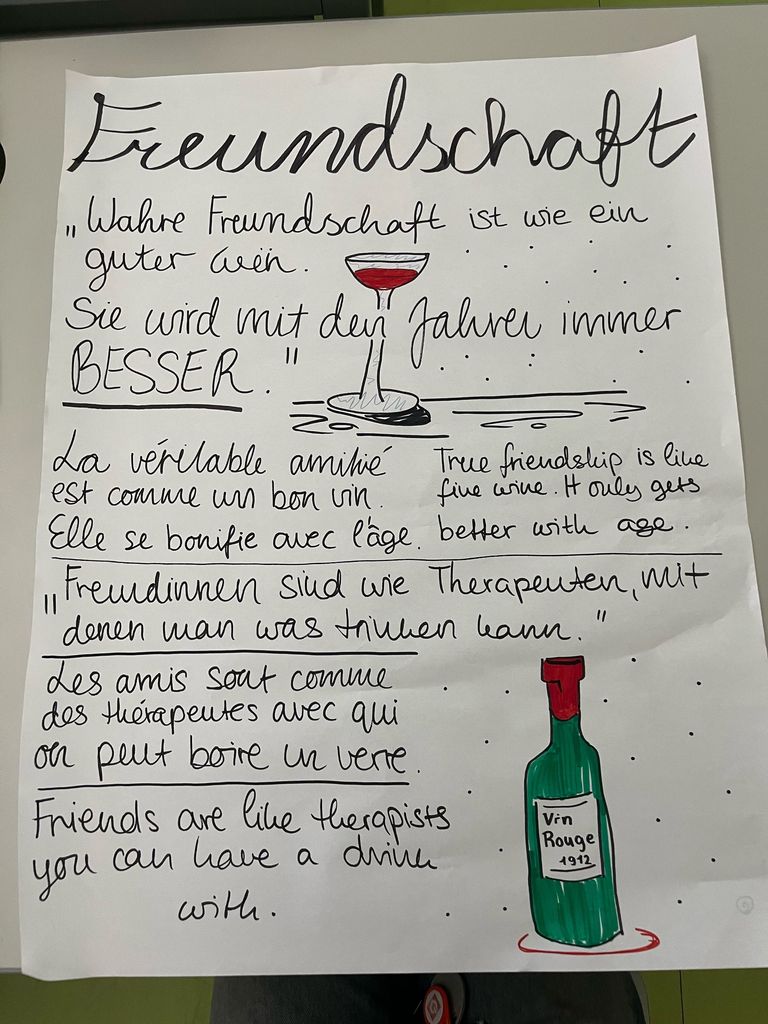 Freundschaft
„Wahre Freundschaft ist wie ein
guter Wein.
Sie wird mit den Jahren immer
BESSER."
La véritable amitié
est comme un bon vin.
Elle se bonifie avec l'âge.
True friendship is like
fine wine. It only gets
better with age.
„Freundinnen sind wie Therapeuten, mit
denen man was trinken kann."
Les amis sont comme
des thérapeutes avec qui
on peut boire un verre.
Friends are like therapists
you can have a drink
with.
Vin
Rouge
1912